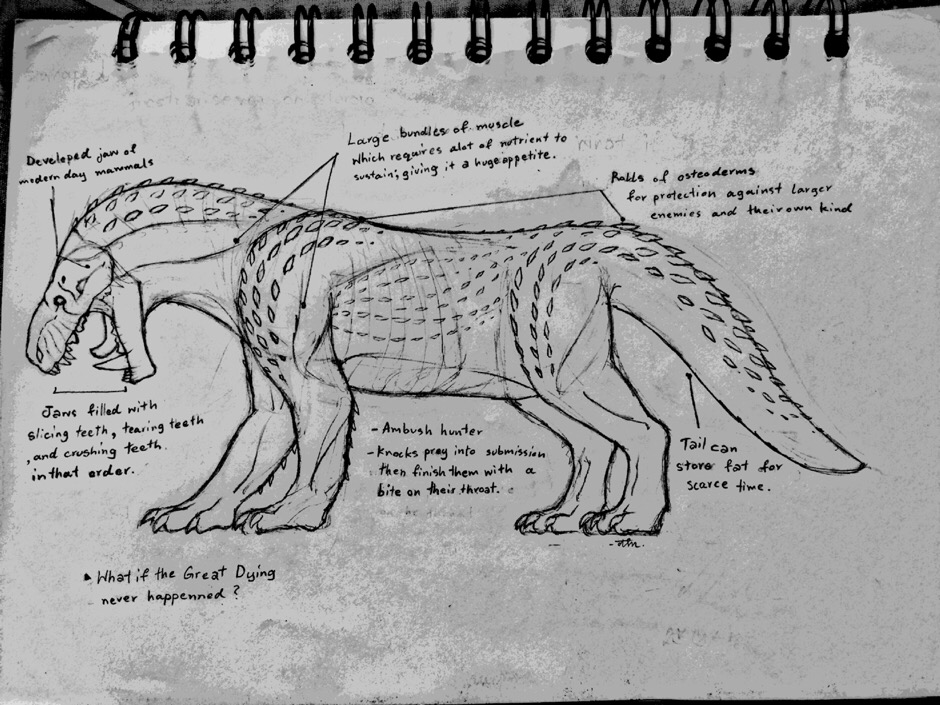 Developed jaw of
modern day mammals
Large bundles of muscle
which requires alot of nutrient to
sustain, giving it a huge appetite.
Rolls of osteoderms
for protection against larger
enemies and their own kind
Jaws filled with
slicing teeth, tearing teeth
, and crushing teeth
in that order.
- Ambush hunter
- Knocks prey into submission
then finish them with a
bite on their throat.
Tail can
store fat for
scarce time.
What if the Great Dying
never happenned?